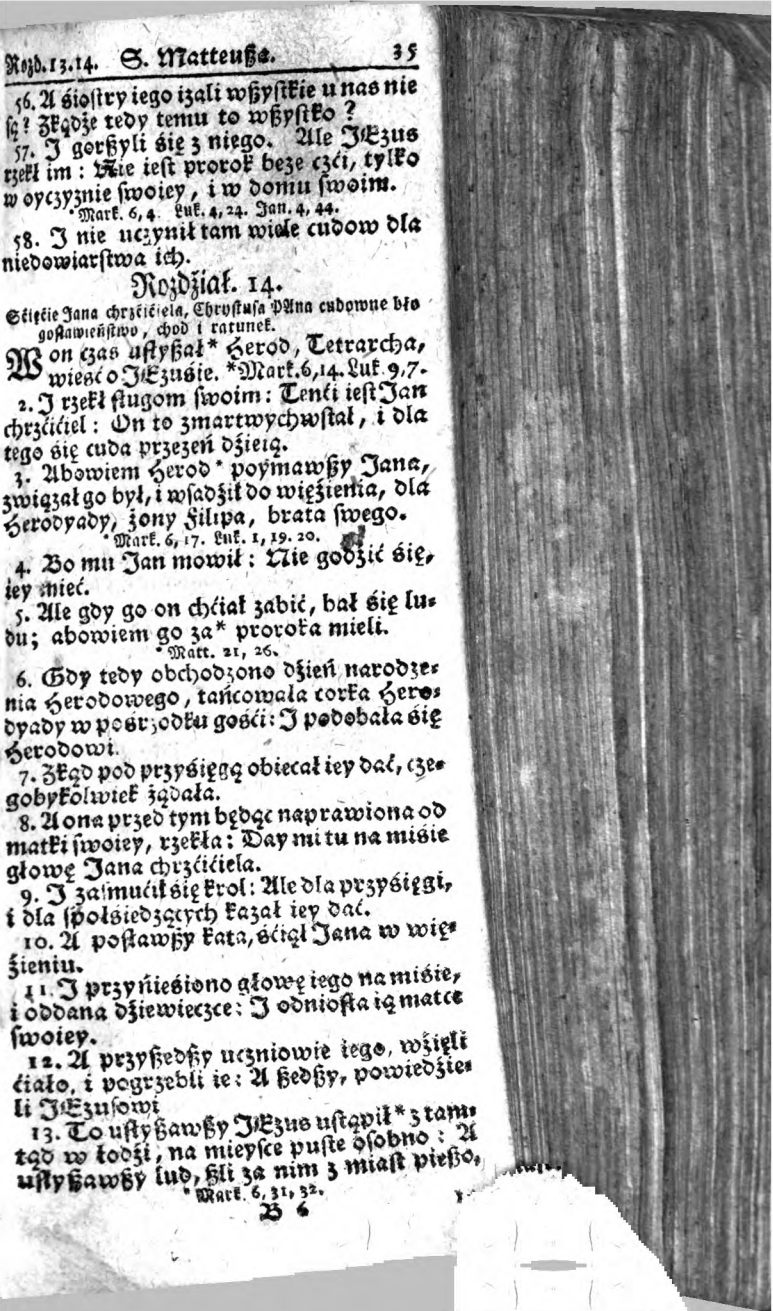 Rozd.13.14. S. Matteuſza. 35
56. A śioſtry iego izali wſzyſtkie u nas nie
ſą? Zkądże tedy temu to wſzyſtko?
57. I gorſzyli śię z niego. Ale JEzus
rzekł im: Nie ieſt prorok beze czći, tylko
w oyczyznie ſwoiey, i w domu ſwoim.
* Mark. 6, 4. Luk. 4, 24. Jan. 4, 44.
58. I nie uczynił tam wiele cudow dla
niedowiarſtwa ich.
Rozdźiał. 14.
Sćięćie Jana chrzćićiela, Chryſtuſa PAna cudowne bło
goſławieńſtwo, chod i ratunek.
W on czas uſłyſzał* Herod, Tetrarcha,
wieść o JEzuśie. *Mark.6,14. Luk. 9,7.
2. I rzekł ſługom ſwoim: Tenći ieſt Jan
chrzćićiel: On to zmartwychwſtał, i dla
tego śię cuda przezeń dźieią.
3. Abowiem Herod* poymawſzy Jana,
związał go był, i wſadźił do więźienia, dla
Herodyady, żony Filipa, brata ſwego.
* Mark. 6, 17. Luk. 1, 19. 20.
4. Bo mu Jan mowił: Nie godźić śię,
iey mieć.
5. Ale gdy go on chćiał zabić, bał śię lu-
du; abowiem go za* proroka mieli.
* Matt. 21, 26.
6. Gdy tedy obchodzono dźień narodze-
nia Herodowego, tańcowała corka Hero-
dyady w pośrzodku gośći: I podobała śię
Herodowi.
7. Zkąd pod przyśięgą obiecał iey dać, cze-
gobykolwiek żądała.
8. A ona przed tym będąc naprawiona od
matki ſwoiey, rzekła: Day mi tu na miśie
głowę Jana chrzćićiela.
9. I zaſmućił śię krol: Ale dla przyśięgi,
i dla ſpołśiedzących kazał iey dać.
10. A poſławſzy kata, śćiął Jana w wię-
źieniu.
11. I przynieśiono głowę iego na miśie,
i oddana dźiewieczce: I odnioſła ią matce
ſwoiey.
12. A przyſzedſzy uczniowie iego, wźięli
ćiało, i pogrzebli ie: A ſzedſzy, powiedźie-
li JEzuſowi
13. To uſłyſzawſzy JEzus uſtąpił* z tam-
tąd w łodźi, na mieyſce puſte oſobno: A
uſłyſzawſzy lud, ſzli za nim z miaſt pieſzo,
* Mark. 6, 31, 32.
B 6